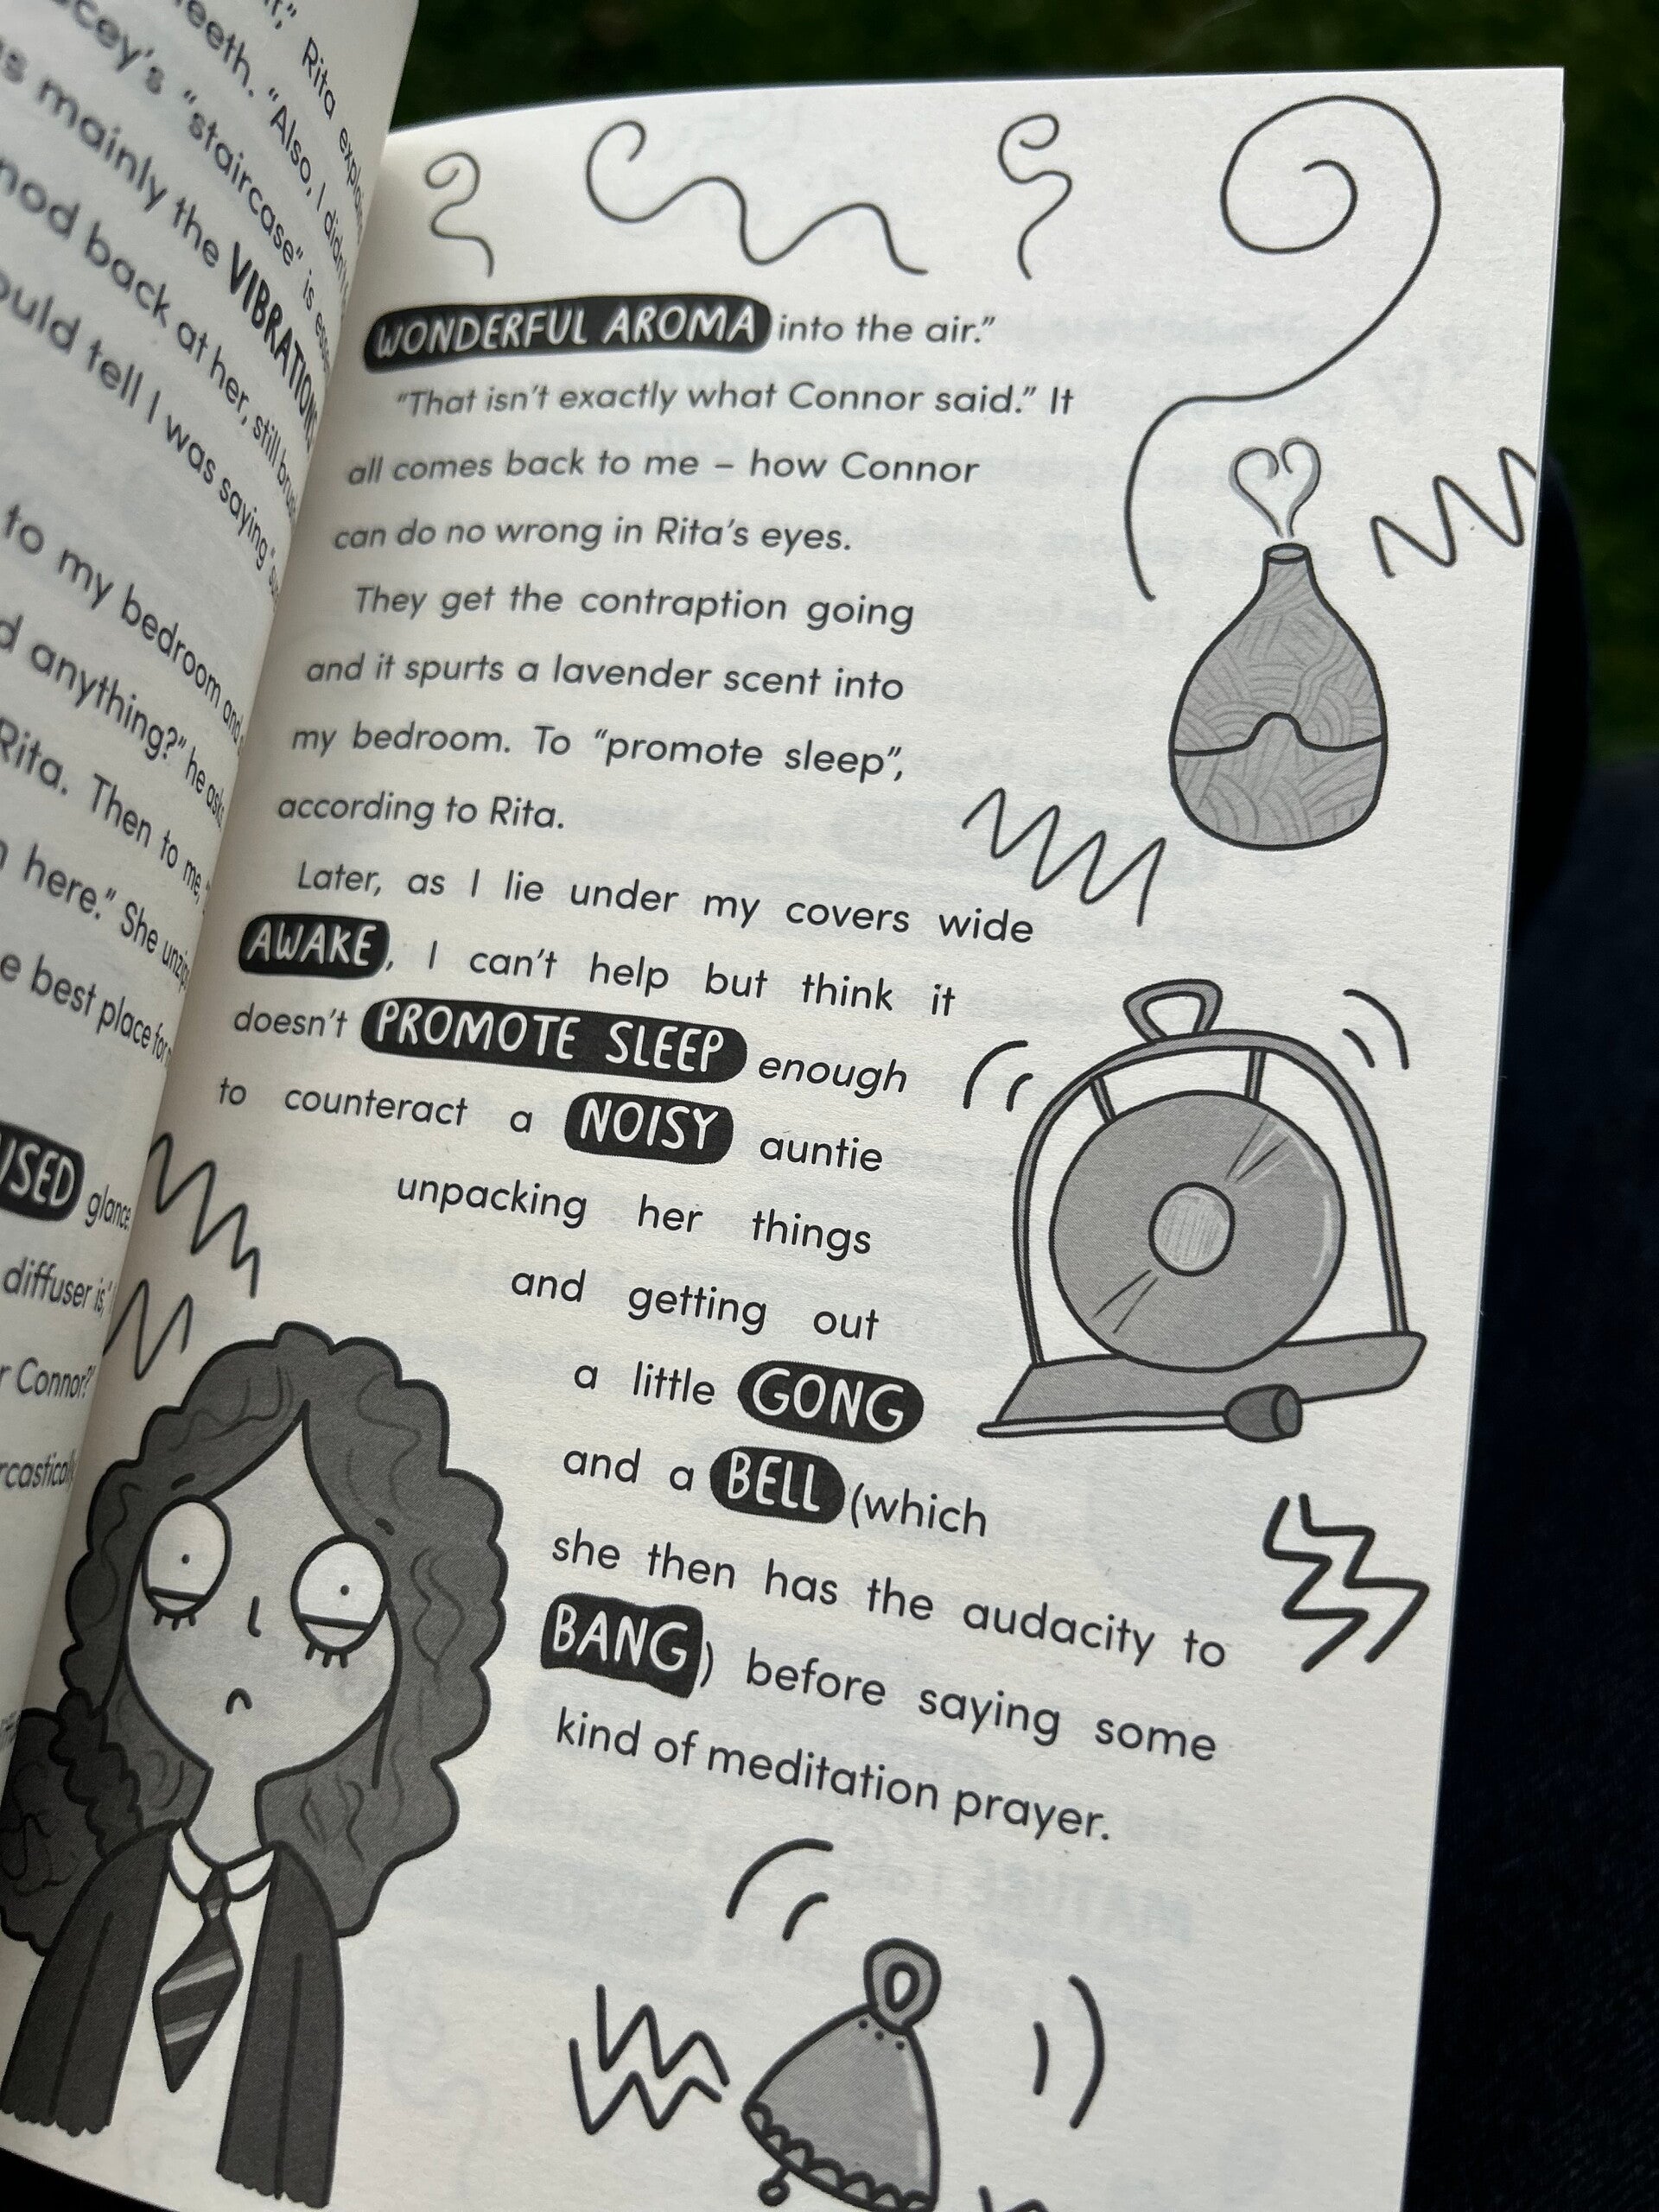 Rita
cey's "staircase" is
teeth. "Also, I didn't
s mainly the VIBRATIONS
nod back at her, still
ould tell I was saying
to my bedroom and
d anything?" he
Rita. Then to me,
here." She
e best place for
USED glance
diffuser is,
r Connor?
WONDERFUL AROMA into the air."
"That isn't exactly what Connor said." It
all comes back to me – how Connor
can do no wrong in Rita's eyes.
They get the contraption going
and it spurts a lavender scent into
my bedroom. To "promote sleep",
according to Rita.
Later, as I lie under my covers wide
AWAKE, I can't help but think it
doesn't PROMOTE SLEEP enough
to counteract a NOISY auntie
unpacking her things
and getting out
a little GONG
and a BELL (which
she then has the audacity to
BANG) before saying some
kind of meditation prayer.